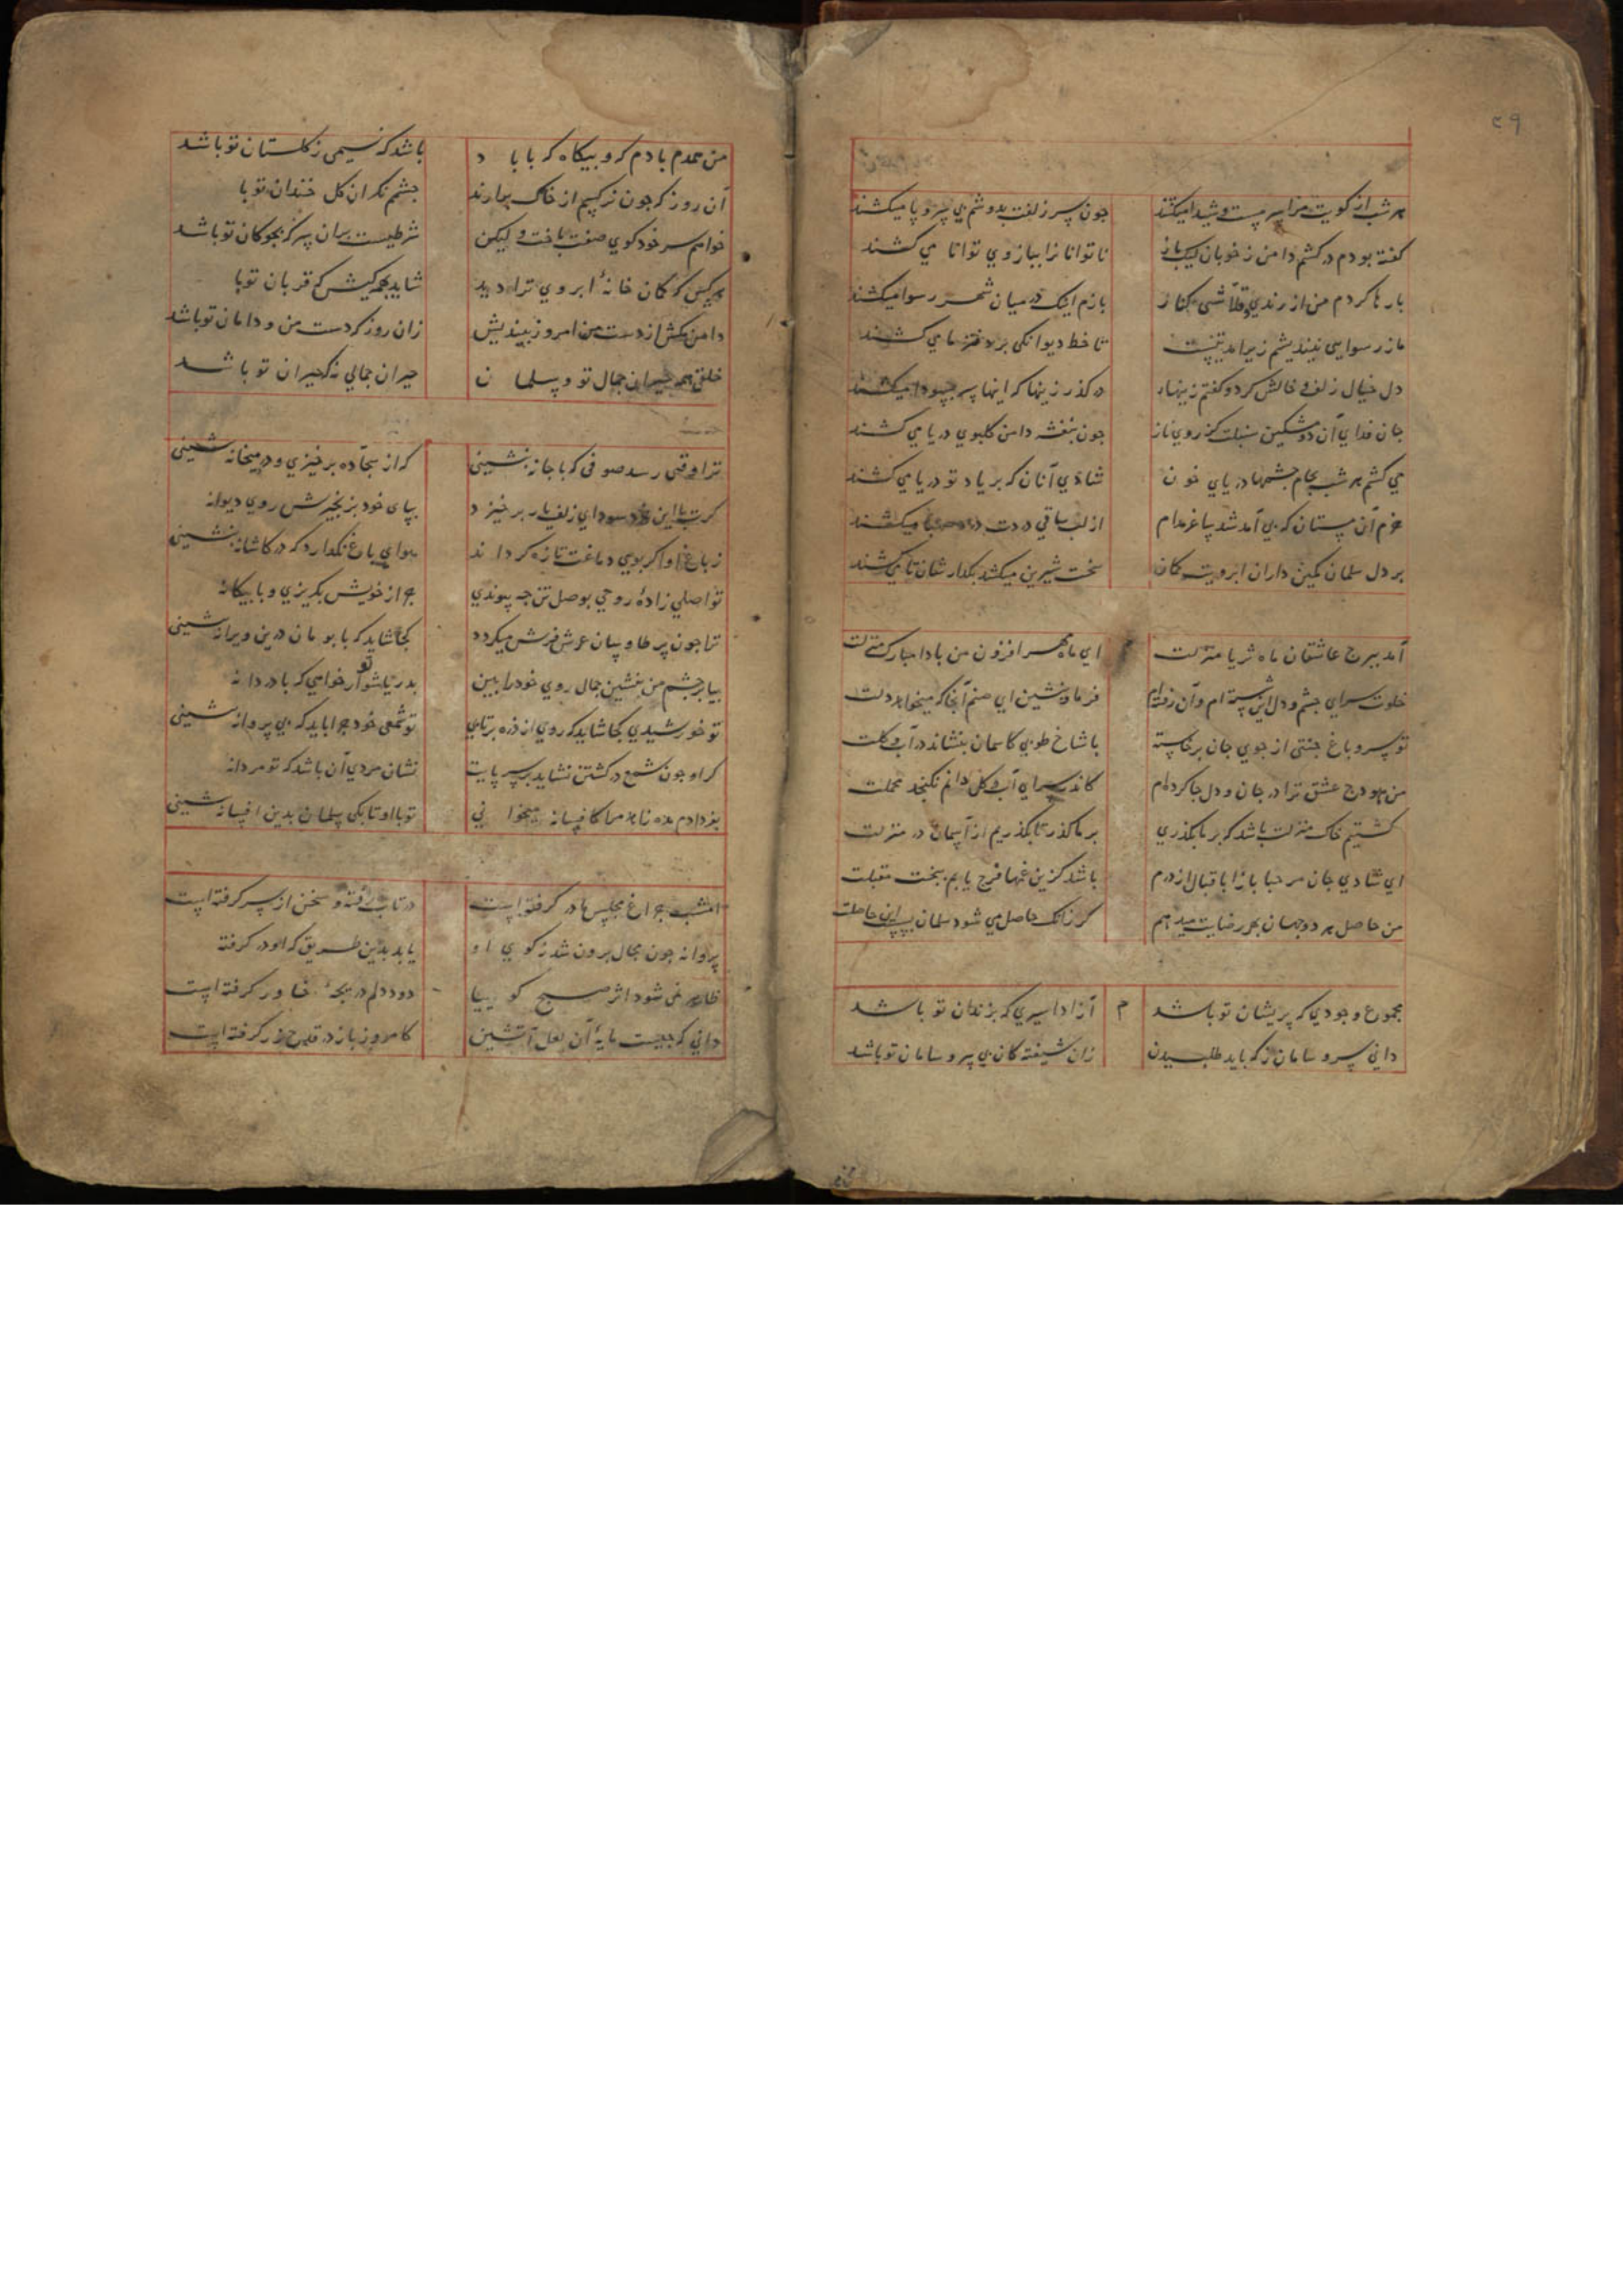 ۲۹
هر شب از کویت مرا سرمست و شیدا میکشند جون سر زلفت بدوشم بی سر و پا میکشند
کفته بودم در کشم دامن ز خوبان لیک باز ناتوانانرا ببازوی توانا می کشند
بارها کردم من از رندی و قلاشی کنار بازم اینک در میان شهر رسوا میکشند
ما ز رسوایی نیندیشیم زیرا مدتیست تا خط دیوانکی بر دفتر ما می کشند
دل خیال زلف و خالش کرد و کفتم زینهار در کذر زینها که اینها سر بسودا میکشند
جان فدای آن دو مشکین سنبلت کز روی ناز جون بنفشه دامن کلبوی در پا می کشند
می کشم هر شب بجام جشمها دریای خون شادی آنان که بر یاد تو دریا می کشند
خرم آن مستان که بی آمد شد پا غر مدام از لب ساقی دردت صهبا میکشند
بر دل سلمان کمین داران ابرویت کمان سخت شیرین میکشند بکذار شان تا می کشند
آمد ببرج عاشقان ماه ثریا منزلت ای ماه مهر افزون من بادا مبارک منزلت
خلوت سرای جشم و دل این شسته ام وآن رفته ام فرما و بنشین ای صنم آنجا که میخواهد دلت
تو سرو باغ جنتی از جوی جان برخاسته با شاخ طوبی کاسمان بنشاند در آب و کلت
من هودج عشق ترا در جان و دل جا کرده ام کاندر سرای آب و کل دانم نکنجد محملت
کشتیم خاک منزلت باشد که بر ما بکذری بر ما کذر تا بکذریم از آسمان در منزلت
ای شادی جان مرحبا بازا باقبال از درم باشد کزین غمها فرج یابم ببخت مقبلت
من حاصل هر دو جهان بهر رضایت میدهم کر زانک حاصل می شود سلمان بس این حاصلت
مجموع وجودی که پریشان تو باشد م آزاد اسیری که بزندان تو باشد
دانی سر و سامان ز که باید طلبیدن زان شیفته کان بی سر و سامان تو باشد
من همدم بادم که و بیکاه که با باد باشد که نسیمی ز کلستان تو باشد
آن روز که جون نرکسم از خاک برآرند جشم نکران کل خندان تو با
خواهم سر خود کوی صفت باخت و لیکن شرطیست بر آن سر که بجوکان تو باشد
هر کس که کمان خانهٔ ابروی ترا دید شاید بهمه کیش که قربان تو با
دامن مکش از دست من امروز بیندیش زان روز که دست من و دامان تو باشد
خلقی همه حیران جمال تو و سلمان حیران جمالی که حیران تو باشد
ترا وقتی رسد صوفی که با جانه بنشینی که از سجّاده برخیزی و در میخانه بنشینی
کرت با این خرد سودای زلف یار برخیزد بپای خود بزنجیرش روی دیوانه
ز باغ او اکر بویی دماغت تازه کرداند هوای باغ نکذارد که در کاشانه بنشینی
تو اصلی زادهٔ روحی بوصل تن جه پیوندی جرا از خویش بکریزی و با بیکانه
ترا جون پر طاوسان عرش فرش میکردد کجا شاید که با بومان درین ویرانه بنشینی
بیا بر جشم من بنشین جمال روی خود را بین بدریا شو ار تو خواهی که با دردانه
تو خورشیدی کجا شاید که روی از ذره برتابی تو شمعی خود جرا باید که بی پروانه بنشینی
کر او جون شمع در کشتن نشاید بر سر پایت نشان مردی آن باشد که تو مردانه
بغدادم مده ناما کافسانه میخوانی تو با او تا بکی سلمان بدین افسانه بنشینی
امشب جراغ مجلس ما در کرفته است در تاب رفته و سخن از سر کرفته است
پروانه جون مجال برون شد ز کوی او یابد بدین طریق که او در کرفته
ظاهر نمی شود اثر صبح کوییا دود دلم دریجهٔ خاور کرفته است
دانی که جیست مایهٔ آن لعل آتشین کامروز باز در قدح زر کرفته است